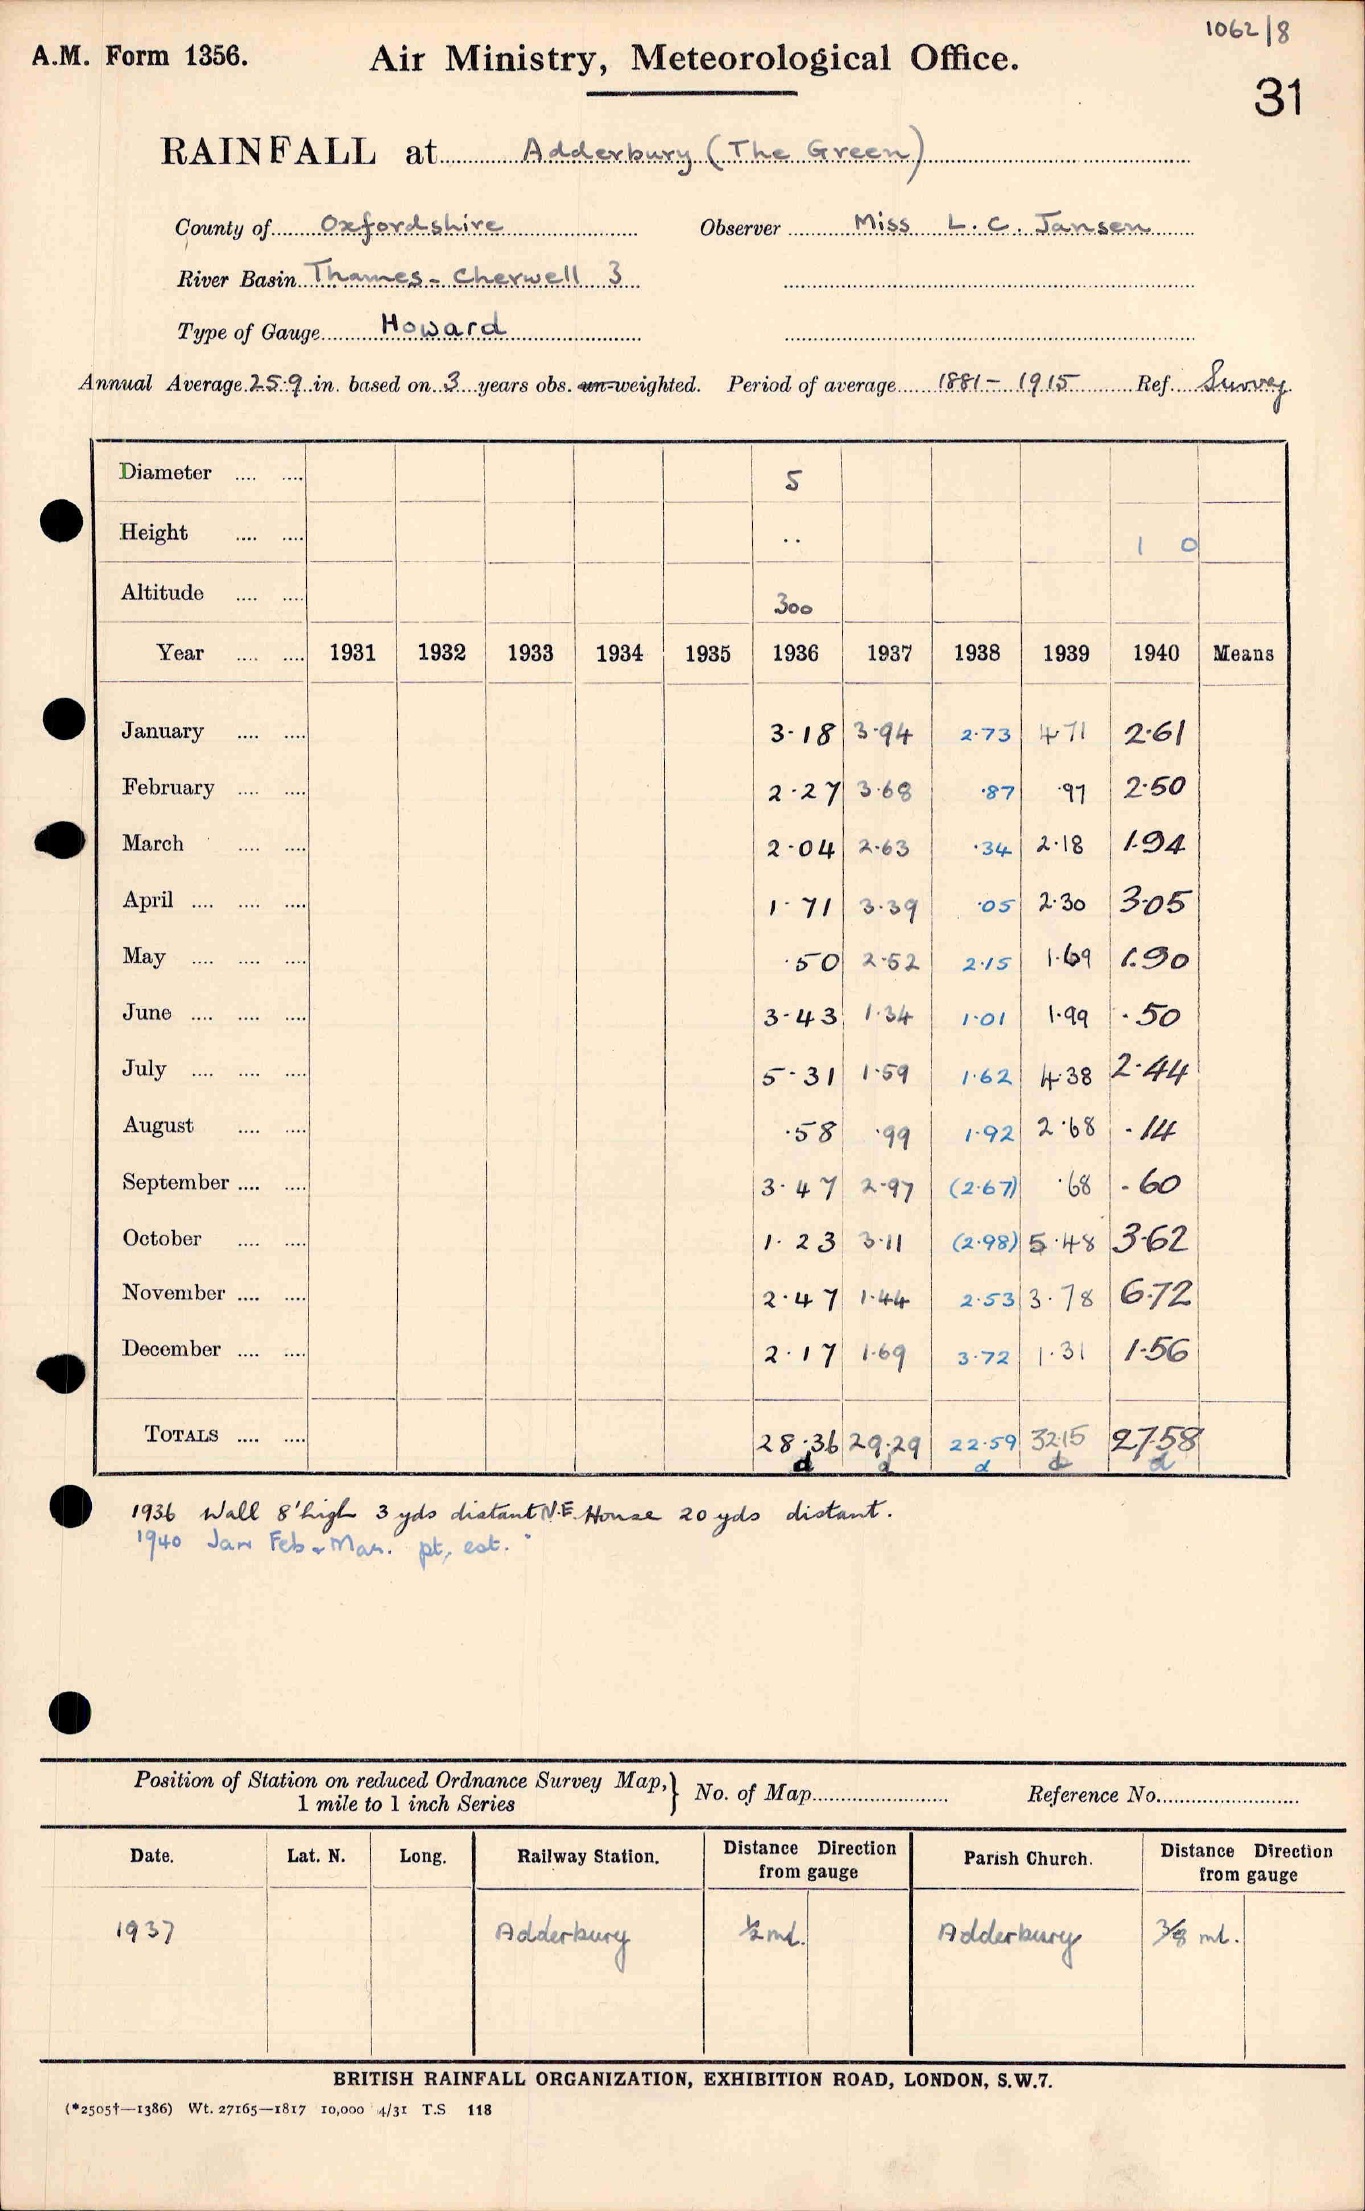 1062/8
A.M. Form 1356. Air Ministry, Meteorological Office.
31
RAINFALL at Adderbury (The Green)
County of Oxfordshire Observer Miss L. C. Jansen
River Basin Thames - Cherwell 3
Type of Gauge Howard
Annual Average 25.9 in. based on 3 years obs. un-weighted. Period of average 1881 - 1915 Ref. Survey
Diameter .... .... 5
Height .... .... .. 1 0
Altitude .... .... 300
Year .... .... 1931 1932 1933 1934 1935 1936 1937 1938 1939 1940 Means
January .... .... 3.18 3.94 2.73 4.71 2.61
February .... .... 2.27 3.68 .87 .97 2.50
March .... .... 2.04 2.63 .34 2.18 1.94
April .... .... .... 1.71 3.39 .05 2.30 3.05
May .... .... .... .50 2.52 2.15 1.69 1.90
June .... .... .... 3.43 1.34 1.01 1.99 .50
July .... .... .... 5.31 1.59 1.62 4.38 2.44
August .... .... .58 .99 1.92 2.68 .14
September .... .... 3.47 2.97 (2.67) .68 .60
October .... .... 1.23 3.11 (2.98) 5.48 3.62
November .... .... 2.47 1.44 2.53 3.78 6.72
December .... .... 2.17 1.69 3.72 1.31 1.56
TOTALS .... .... 28.36 29.29 22.59 32.15 27.58
d d d d d
1936 Wall 8' high 3 yds distant N.E. House 20 yds distant.
1940 Jan Feb & Mar. pt. est.
Position of Station on reduced Ordnance Survey Map, } No. of Map Reference No.
1 mile to 1 inch Series
Date. Lat. N. Long. Railway Station. Distance Direction from gauge Parish Church. Distance Direction from gauge
1937 Adderbury ½ ml. Adderbury 3/8 ml.
BRITISH RAINFALL ORGANIZATION, EXHIBITION ROAD, LONDON, S.W.7.
(*2505†—1386) Wt. 27165—1817 10,000 4/31 T.S 118